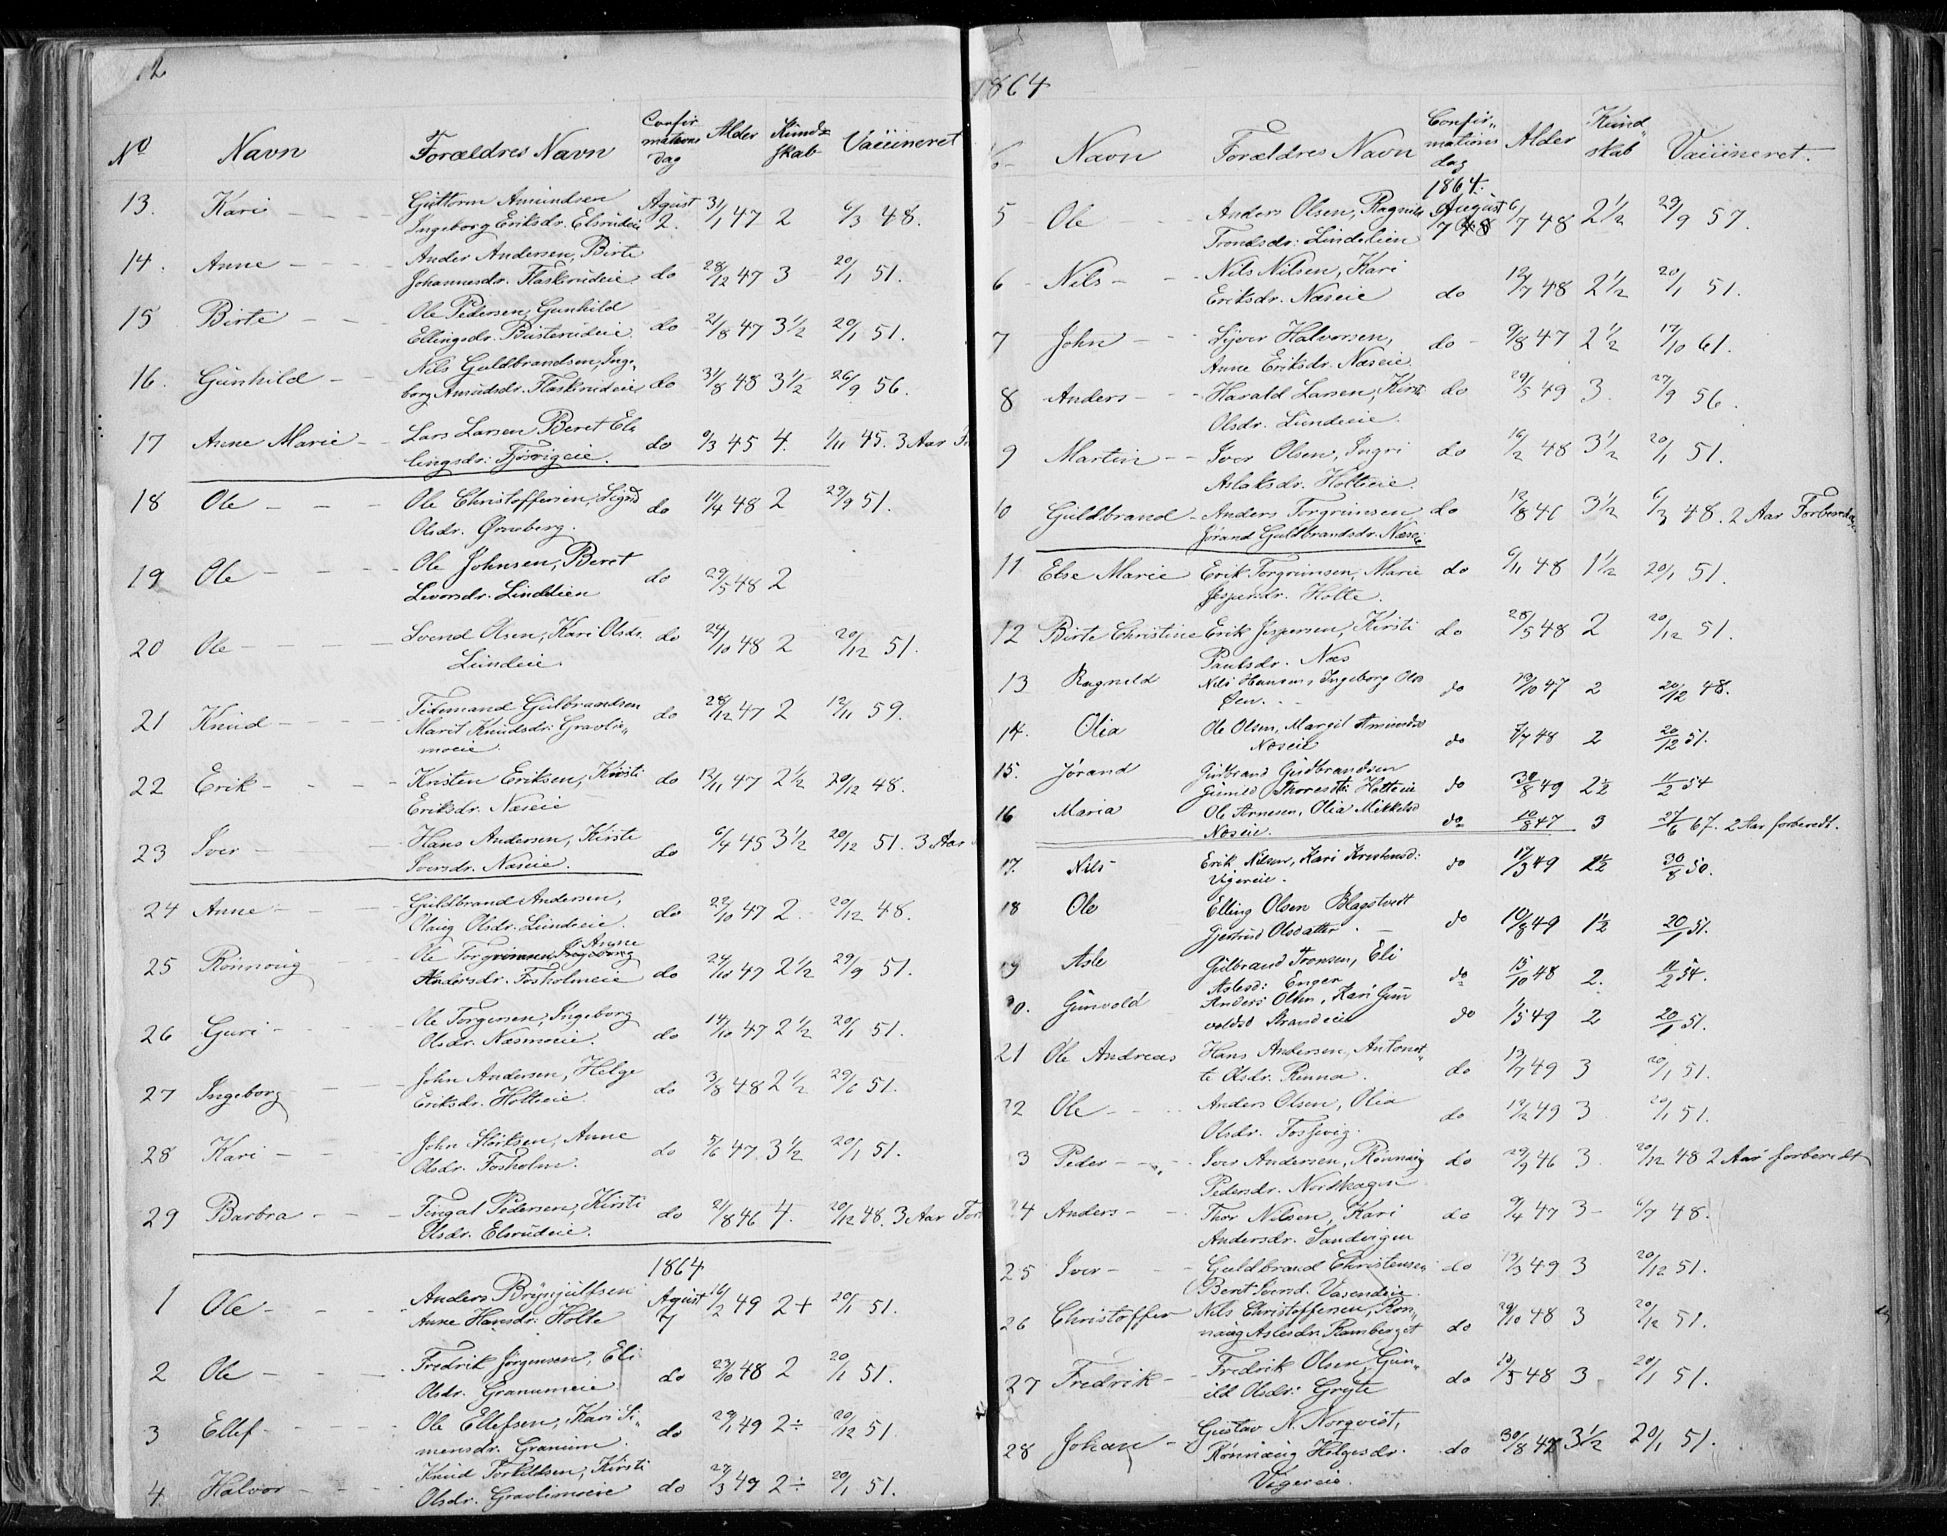 12
No Navn Forældres Navn Confir mations dag Alder Kund= skab Vaccineret
13. Kari - - - Guttorm Amundsen Agust 31/1 47 2 6/3 48.
Ingeborg Eriksdr. Elsrudeie 2.
14. Anne - - - Ander Andersen, Birte
Johannesdr. Flaskerudeie do 28/12 47 3 20/1 51.
15 Birte - - - Ole Pedersen, Gunhild
Ellingsdr. Busterudeie do 21/8 47 3 1/2 20/1 51.
16. Gunhild - - Nils Guldbrandsen, Inge-
borg Amundsdr. Flaskerudeie do 31/8 48 3 1/2 26/9 56.
17 Anne Marie - - Lars Larsen Beret El-
lingsdr: do 9/3 45 4. 1/11 45. 3 Aar
18 Ole - - - Ole Christoffersen, Sigrid
Olsdr. Ørneberg. do 11/4 48 2 29/9 51.
19 Ole - - - Ole Johnsen, Beret
Levorsdr. Lindelien do 29/5 48 2
20 Ole - - - Svend Olsen, Kari Olsdr. do 24/10 48 2 20/12 51.
Lundeie.
21 Knud - - - Tidemand Gulbrandsen
Marit Knudsdr. Gravli- do 28/12 47 2 12/11 59.
moeie
22 Erik - - - Kristen Eriksen, Kirsti do 12/11 47 2 1/2 20/12 48.
Eriksdr. Næseie
23 Iver - - - Hans Andersen, Kirste 6/4 45 3 1/2 20/12 51. 3 Aar
Iversdr. Næseie. do
24 Anne - - - Guldbrand Andersen,
Olaug Olsdr. Lundeie. do 22/10 47 2. 20/12 48.
25 Rønnoug Ole Torgrimsen, Anne
Andersdr. Fosholmeie do 24/10 47 2 1/2 29/9 51.
26 Guri - - - Ole Torgersen, Ingeborg
Olsdr. Næsmoeie. do 14/10 47 2 1/2 20/1 51.
27 Ingeborg - - - John Andersen, Helge
Eriksdr. Holteeie. do 3/8 48 2 1/2 29/6 51.
28 Kari - - - John Anne do 5/6 47. 3 1/2 20/1 51.
Olsdr. Fosholm.
29 Barbra - - - Fingal Pedersen, Kirsti
Olsdr. Elsrudeie. do 21/8 46 4. 20/12 48. 3 Aar For
1864
1 Ole - - - Anders Brynjulfsen Agust 16/2 49 2+ 20/1 51.
Anne Hansdr: Holte 7
2 Ole - - - Fredrik Jørgensen, Eli
Olsdr. Granumeie. do 23/10 48 2 20/1 51.
3 Ellef - - - Ole Ellefsen, Kari Si-
mensdr. Granum. do 29/1 49 2÷ 20/12 51.
4 Halvor - - - Knud Torkildsen, Kirsti
Olsdr. Gravlimoeie do 27/3 49 2÷ 20/1 51.
1864
No Navn Forældres Navn Confir- mations dag Alder Kund- skab Vaccineret.
1864.
5 Ole - - Anders Olsen, Ragnild August 6/7 48 2 1/2 23/9 57.
Trondsdr: Lindelien 7
6 Nils - - Nils Nilsen, Kari
Eriksdr. Næseie do 12/7 48 2 1/2 20/1 51.
7 John - - Syver Halvorsen, do - 9/8 47 2 1/2 17/10 61.
Anne Eriksdr. Næseie
8 Anders - - Harald Larsen, Kirsti do 29/5 49 3. 27/9 56.
Olsdr. Lundeie.
9 Martin - - Iver Olsen, Ingri do 16/2 48 3 1/2 20/1 51.
Aslaksdr. Holteeie.
10 Guldbrand - Anders Torgrimsen, do 12/8 46 3 1/2 6/3 48. 2 Aar Forberedt.
Jørand Guldbrandsdr. Næseie
11 Else Marie Erik Torgrimsen, Marie do 6/11 48 1 1/2 20/1 51.
Jespersdr. Holte.
12 Birte Christine Erik Jespersen, Kirsti do 28/5 48 2 20/12 51.
Paulsdr. Næs
13 Ragnild Nils Hansen, Ingeborg Olsd do 13/10 47 2 20/12 48.
Øen.
14. Olia Ole Olsen, Margit Amundsd
Næseie do 7/7 48 2 20/12 51.
15. Jørand Gudbrand Gudbrandsen
Gunild Thoresdtr Holteeie do 30/8 49 2 1/2 11/2 54
16 Maria Ole Arnesen, Olia Mikkelsd
Næseie. do 10/8 47 3 27/6 67. 2 Aar forberedt.
17. Nils Erik Nilsen, Kari Krestensd: do 17/3 49 1 1/2 30/8 50.
Vigereie.
18 Ole Elling Olsen Blagstvedt
Gjertrud Olsdatter. do 10/8 49 1 1/2 20/1 51.
19 Asle Gulbrand Tronsen, Eli
Aslesd: Enger do 15/10 48 2. 11/2 54.
20. Gunvold Anders Olsen, Kari Gun
voldsd Strandeie do 1/5 49 2 20/1 51.
21 Ole Andreas Hans Andersen, Antonet-
te Olsdr. Renna. do 13/7 49 3 20/1 51.
22 Ole - - Anders Olsen, Olia
Olsdr. do 12/2 49 3 20/1 51.
3 Peder - - Iver Andersen, Rønnaug do 29/9 46 3. 20/12 48 2 Aar forberedt
Pedersdr. Nordhagen
24 Anders - - Thor Nilsen, Kari do 9/4 47 3 - 6/7 48.
Andersdr. Sandvigen
25 Iver - - Guldbrand Christensen do 13/3 49 3 20/12 51.
Berit Svend. Vasendeie.
26 Christoffer Nils Christoffersen, Røn-
naug Aslesdr. Ramberget do 29/10 48 3 20/12 51.
27 Fredrik - - Fredrik Olsen, Gun-
ild Olsdr: Gryte do 10/5 48 3 - 20/1 51.
28 Johan - Gustav N. Norqvist,
Rønnaug Helgesdr. do 30/8 48 3 1/2 20/1 51.
Vigereie.